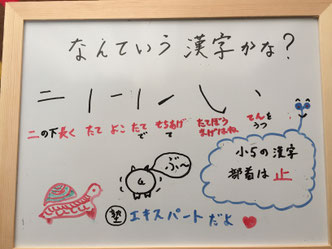 なんていう漢字かな?
二の下長く たて よこ たてで もちあげて たてぼうまげはね てんをうつ
ぶ〜
小5の漢字
部首は止
塾エキスパートだよ